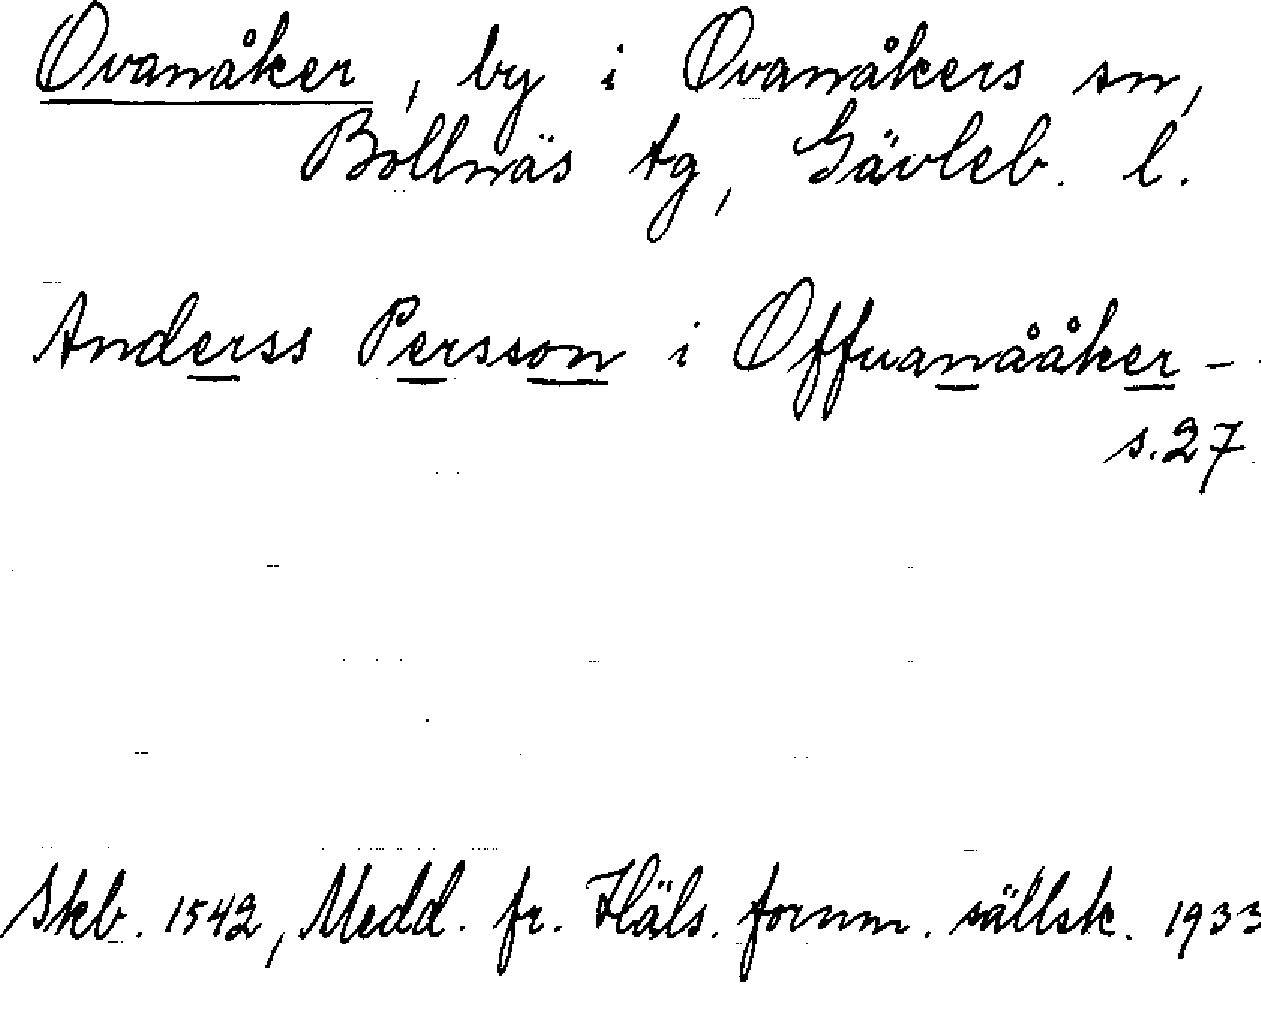 Ovanåker, by i Ovanåkers sn,
Bollnäs tg, Gävleb. l.
Anderss Persson i Offuanååker –
s. 27
Skb. 1542, Medd. fr. Häls. fornm. sällsk. 1933